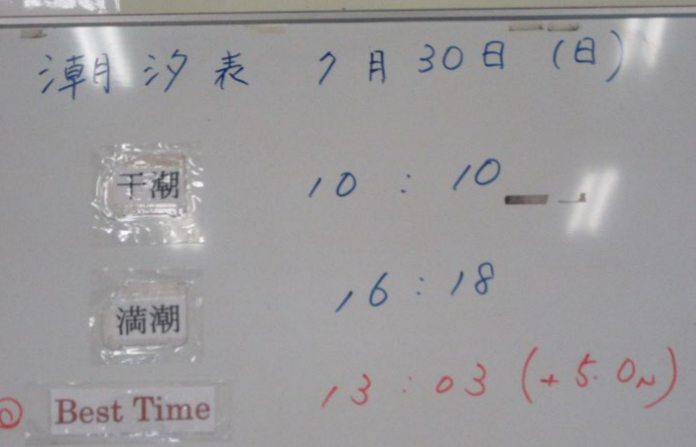 潮汐表 7月30日(日)
干潮 10:10
満潮 16:18
◎ Best Time 13:03 (+5.0N)